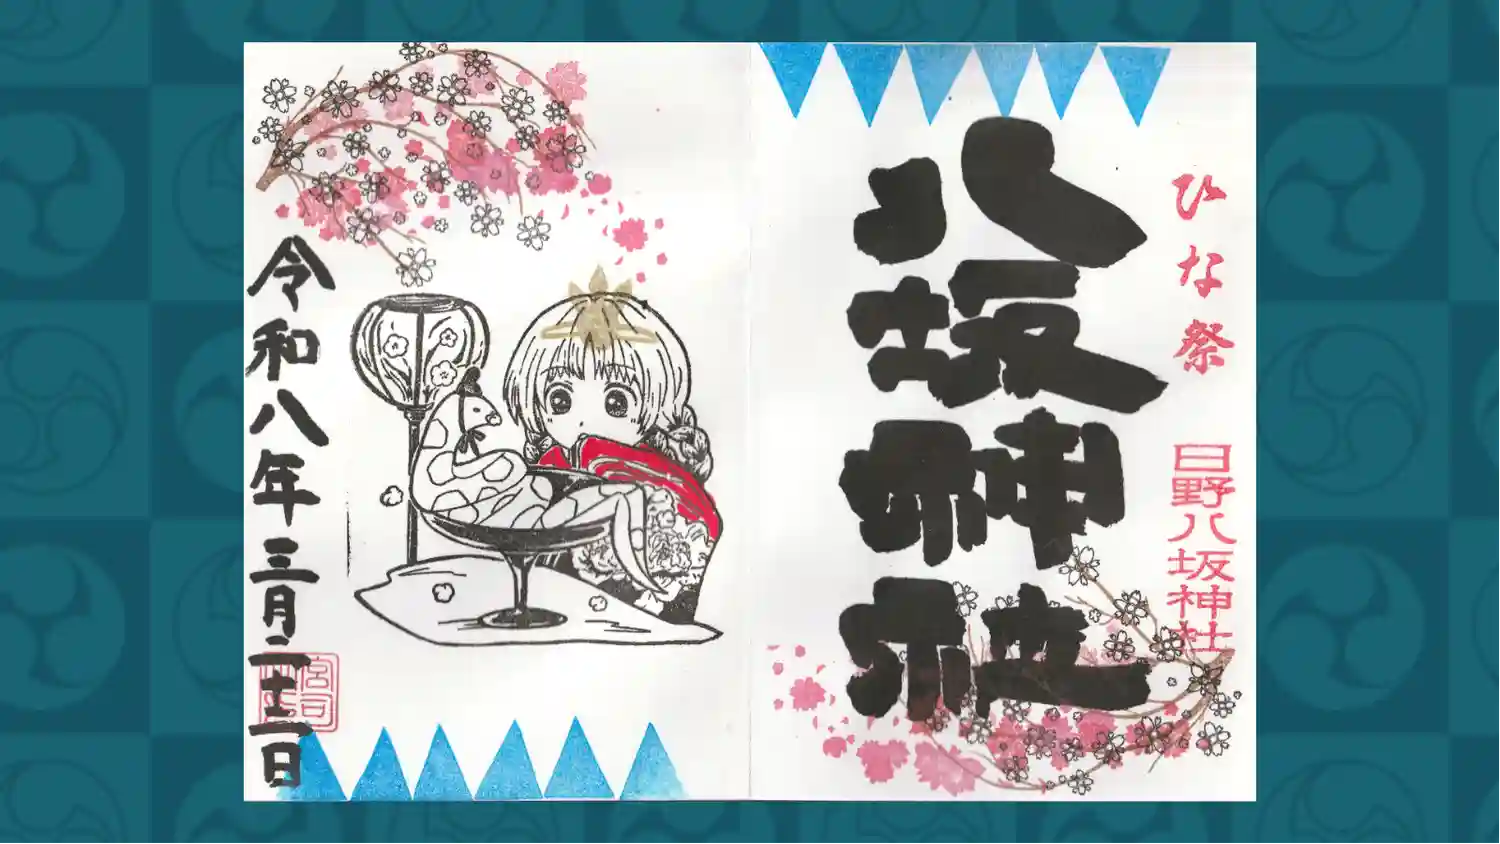 ひな祭
日野八坂神社
八坂神社
宮司
令和八年三月二十二日